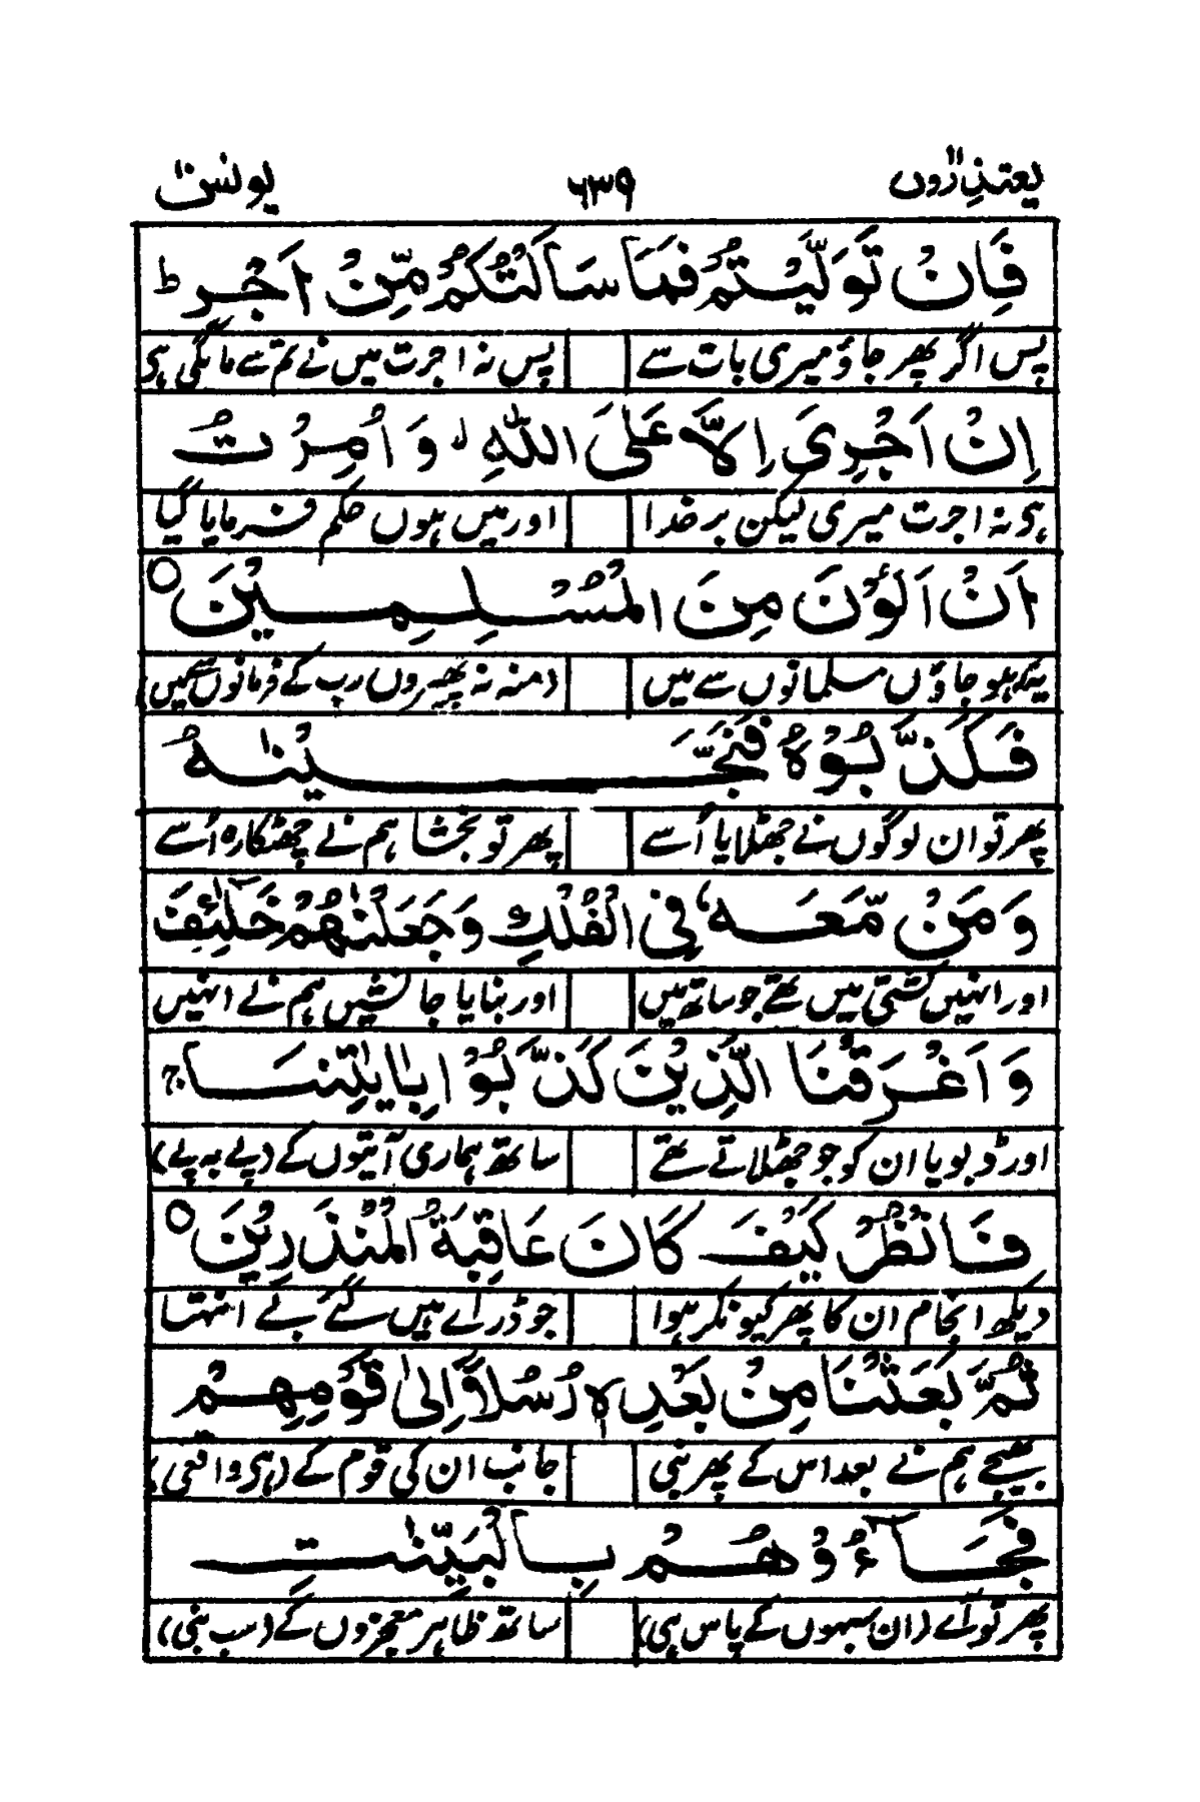 یعتذرون ۱۱ ۶۳۹ یونس ۱۰
فَاِنْ تَوَلَّیْتُمْ فَمَا سَاَلْتُكُمْ مِّنْ اَجْرٍ ؕ
پس اگر پھر جاؤ میری بات سے پس نہ اجرت میں نے تم سے مانگی ہی
اِنْ اَجْرِیَ اِلَّا عَلَی اللّٰهِ ۙ وَ اُمِرْتُ
ہی نہ اجرت میری لیکن بر خدا اور میں ہوں حکم فرمایا گیا
اَنْ اَكُوْنَ مِنَ الْمُسْلِمِیْنَ ○
یہ کہ ہو جاؤں مسلمانوں سے میں (منہ نہ پھیروں رب کے فرمانوں سے کہیں)
فَكَذَّبُوْهُ فَنَجَّیْنٰهُ
پھر تو ان لوگوں نے جھٹلایا اُسے پھر تو بخشا ہم نے چھٹکارہ اُسے
وَ مَنْ مَّعَهٗ فِی الْفُلْكِ وَ جَعَلْنٰهُمْ خَلٰٓئِفَ
اور انہیں کشتی میں تھے جو ساتھ میں اور بنایا جانشیں ہم نے انہیں
وَ اَغْرَقْنَا الَّذِیْنَ كَذَّبُوْا بِاٰیٰتِنَا ۚ
اور ڈبویا ان کو جو جھٹلاتے تھے ساتھ ہماری آیتوں کے (پے بہ پے)
فَانْظُرْ كَیْفَ كَانَ عَاقِبَةُ الْمُنْذَرِیْنَ ○
دیکھ انجام ان کا پھر کیونکر ہوا جو ڈرائے ہیں گئے بے انتہا
ثُمَّ بَعَثْنَا مِنْ بَعْدِهٖ رُسُلًا اِلٰی قَوْمِهِمْ
بھیجے ہم نے بعد اس کے پھر نبی جانب ان کی قوم کے (ہی واقعی)
فَجَآءُوْهُمْ بِالْبَیِّنٰتِ
پھر تو آئے (ان سبھوں کے پاس ہی) ساتھ ظاہر معجزوں کے (سب نبی)